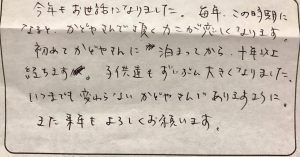 今年もお世話になりました。毎年、この時期に
なると、かどやさんで頂くカニが恋しくなります。
初めてかどやさんに泊まってから、十年以上
経ちます。子供達もずいぶん大きくなりました。
いつまでも変わらないかどやさんでありますように。
また来年もよろしくお願います。